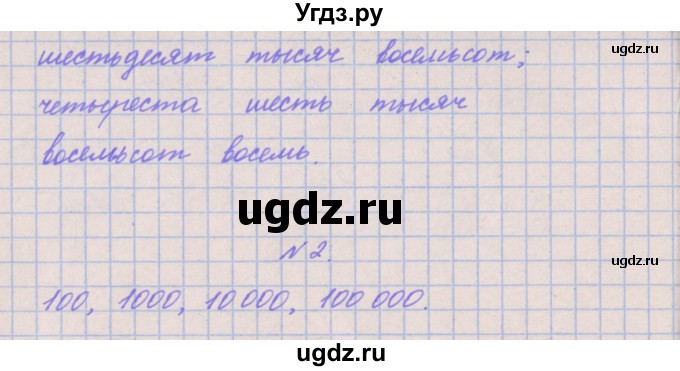 Угдз.ру
шестьдесят тысяч восемьсот;
ugdz.ru
четыреста шесть тысяч
восемьсот восемь.
ugdz.ru
№2.
ugdz.ru
100, 1000, 10 000, 100 000.
ugdz.ru